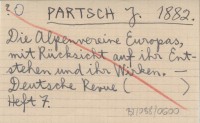 PARTSCH J. 1882.
Die Alpenvereine Europas,
mit Rücksicht auf ihr Ent-
stehen und ihr Wirken. —
Deutsche Revue (       )
Heft 7.